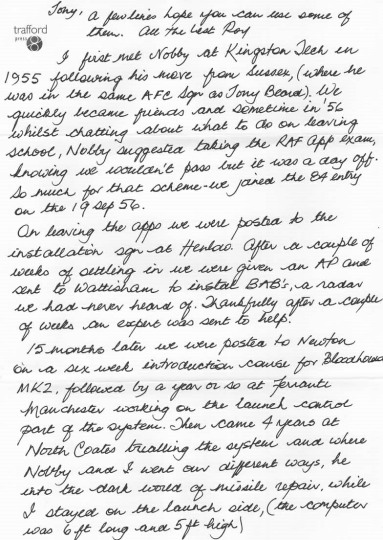 Tony, a few lines hope you can use some of
them. All the best Roy
trafford
press
I first met Nobby at Kingston Tech in
1955 following his move from Sussex, (where he
was in the same AFC Sqn as Tony Beard). We
quickly became friends and sometime in '56
whilst chatting about what to do on leaving
school, Nobby suggested taking the RAF App exam,
knowing we wouldn't pass but it was a day off.
So much for that scheme - we joined the 84 entry
on the 19 Sep 56.
On leaving the apps we were posted to the
installation sqn at Henlow. After a couple of
weeks of settling in we were given an AP and
sent to Wattisham to instal BAB's, a radar
we had never heard of. Thankfully after a couple
of weeks an expert was sent to help.
15 months later we were posted to Newton
on a six week introduction course for Bloodhound
MK2, followed by a year or so at Ferranti
Manchester working on the launch control
part of the system. Then came 4 years at
North Coates trialling the system and where
Nobby and I went our different ways, he
into the dark world of missile repair, while
I stayed on the launch side, (the computer
was 6 ft long and 5 ft high)